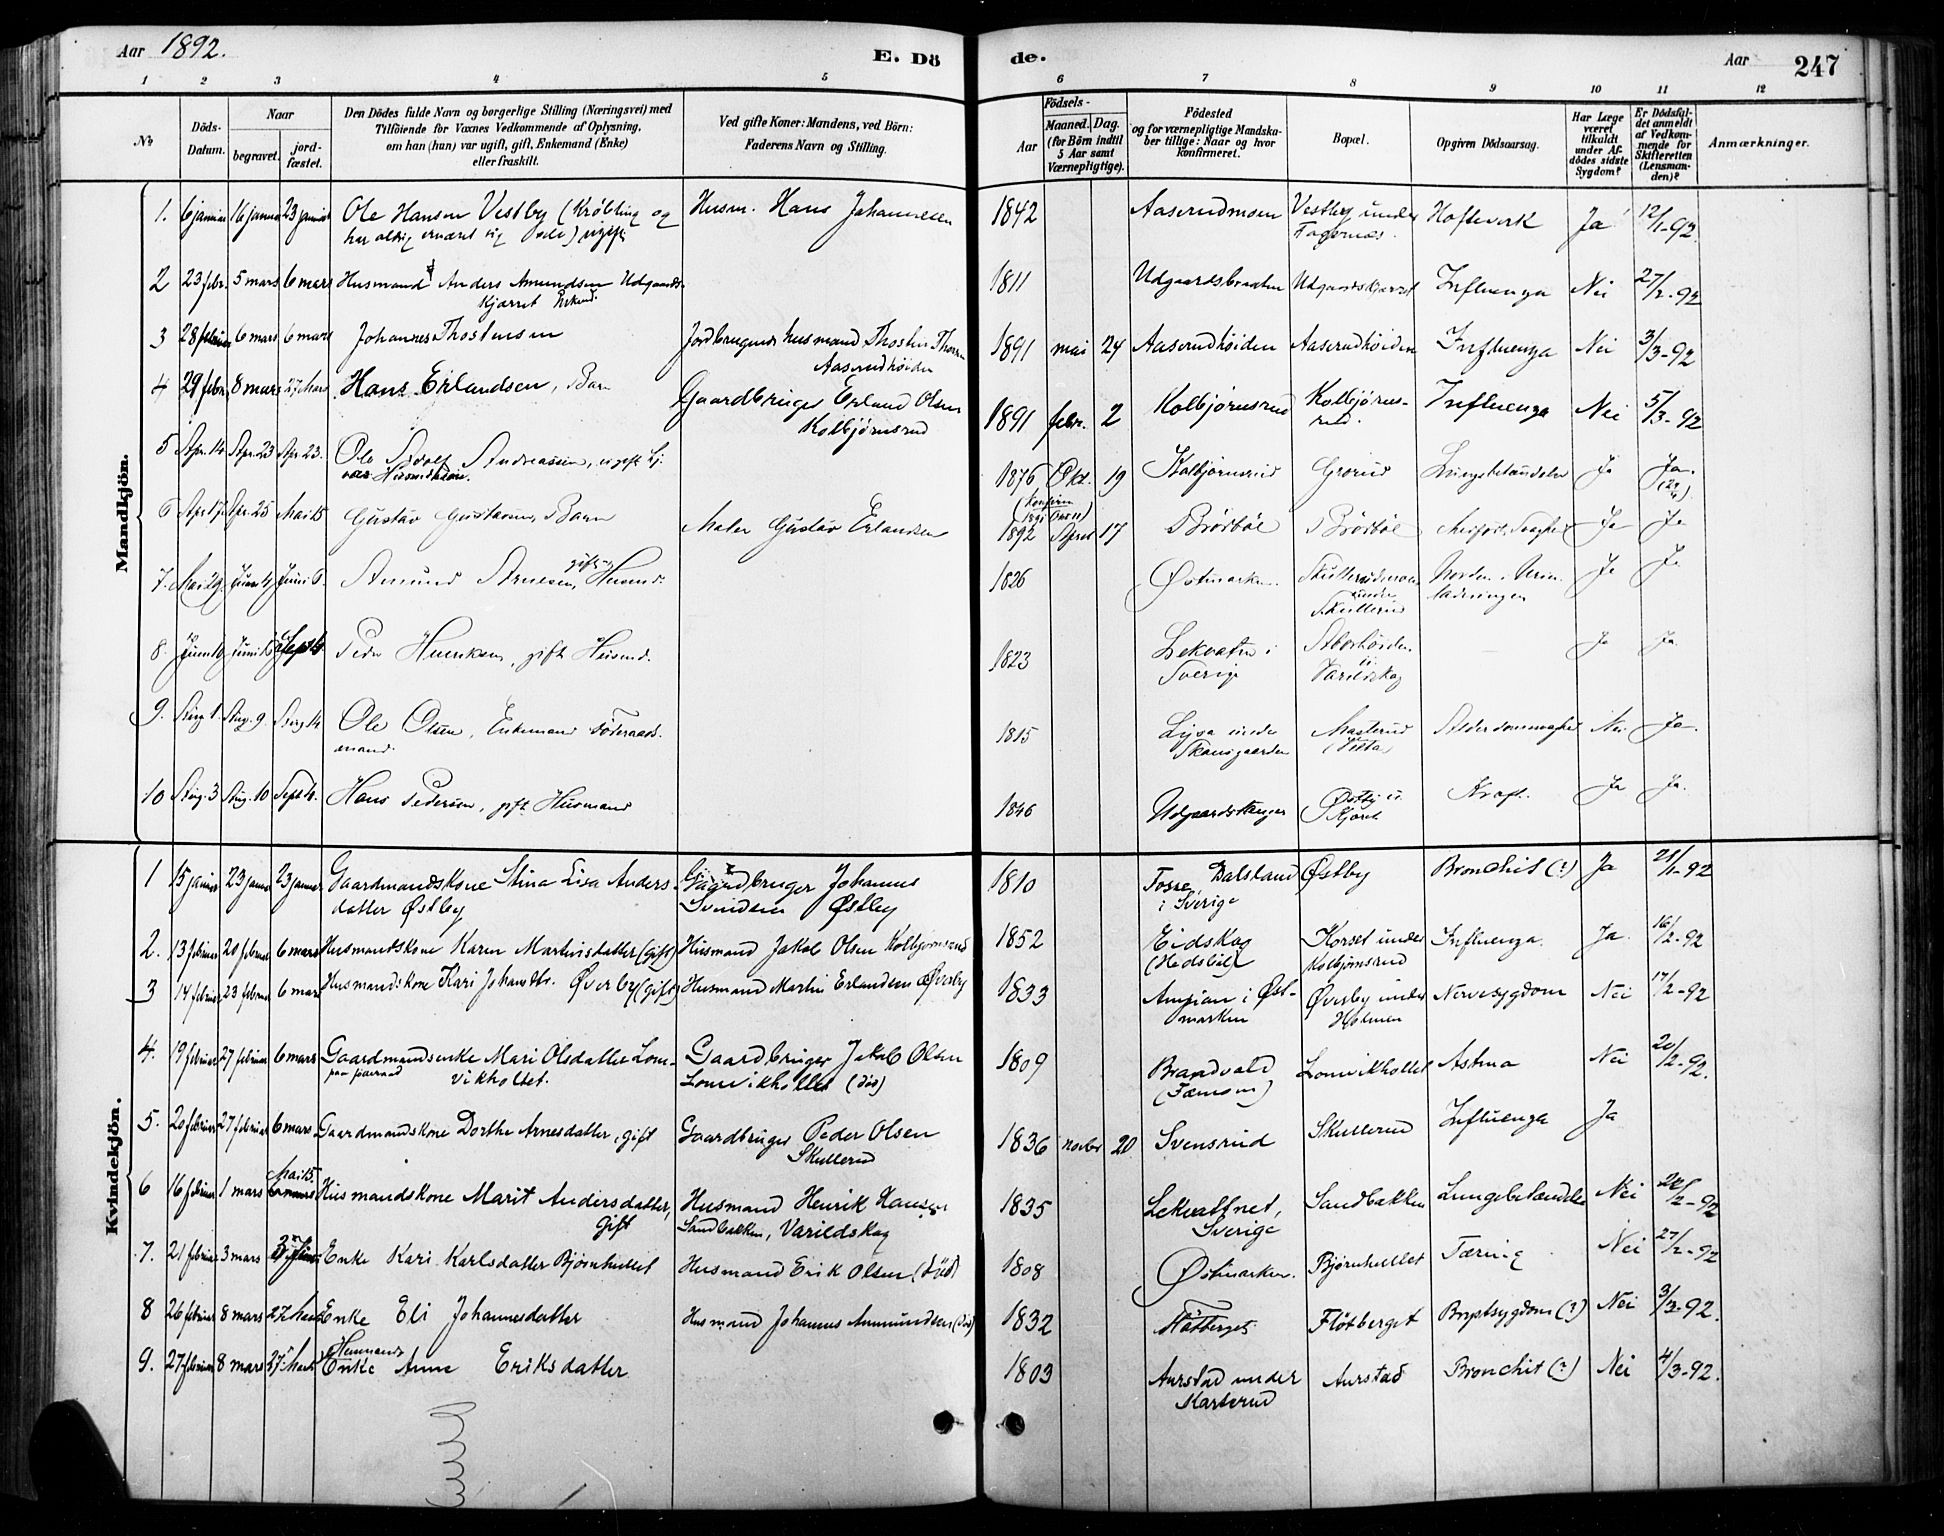 Aar 1892.
E. Dö
de.
Aar
247
1 2 3 4 5 6 7 8 9 10 11 12
No
Döds-Datum.
Naar
begravet.
jord-fæstet.
Den Dödes fulde Navn og borgerlige Stilling (Næringsvei) med
Tilföiende for Vaxnes Vedkommende af Oplysning,
om han (hun) var ugift, gift, Enkemand (Enke)
eller fraskilt.
Ved gifte Koner: Mandens, ved Börn:
Faderens Navn og Stilling.
Födsels-
Aar
Maaned. Dag.
(for Börn indtil
5 Aar samt
Værnepligtige).
Födested
og for værnepligtige Mandska-
ber tillige: Naar og hvor
konfirmeret.
Bopæl.
Opgiven Dödsaarsag.
Har Læge
været
tilkaldt
under Af-
dödes sidste
Sygdom?
Er Dödsfal-
det anmeldt
af Vedkom-
mende for
Skifteretten
(Lensman-
den)?
Anmærkninger.
Mandkjön.
1. 6 januar 16 januar 23 januar Ole Hansen Vestby (Krøbling og Husm. Hans Johannesen 1842 Aaserudmoen Vestby under Hofteverk Ja 12/1-92.
har aldrig ernæret sig selv) ugift Fagernæs.
2 23 febr. 5 mars 6 mars Husmand Anders Amundsen Udgaards- 1811 Udgaardsbraaten Udgaardskjærret Influenza Nei 27/2-92
kjærret Enkem.
3 28 februar 6 mars 6 mars Johannes Thostensen Jordbrugende husmand Thosten 1891 mai 24 Aaserudhöiden Aaserudhöiden Influenza Nei 3/3-92
Aaserudhöiden
4 29 febr. 8 mars 27 Mars Hans Erlandsen, Barn Gaardbruger Erland Olsen 1891 febr. 2 Kolbjörnsrud Kolbjörns- Influenza Nei 5/3-92
Kolbjörnsrud rud.
5 Apr. 14 Apr. 23 Apr 23. Ole Adolf Andreassen, ugift 1876 Okt. 19 Kolbjørnsrud Grorud Lungebetændelse Ja Ja
6 Apr 17 Apr. 25 Mai 15 Gustav Gustavsen, Barn Maler Gustav Erlandsen 1892 April 17 Brörböl Brörböl Ja Ja
7. Mai 29. Juni 4 Juni 6. Amund Arnesen, gift Husmd. 1826 Østmarken. Skullerudmoen Ja Ja
under
Skullerud
8. Juni 10 Juni 18 Sept 4 Peder Henriksen, gift Husmd. 1823 Lekvatten i Ja Ja
Sverige Varildskog
9. Aug 1. Aug. 9. Aug 14. Ole Olsen, Enkemand Föderaads- 1815 Lysa under Masterud Alderdomssvaghed Nei Ja.
mand. Skansgaarden
10 Aug. 3 Aug. 10 Sept 4. Hans Pedersen, gift Husmand 1846 Kræft. Ja Ja.
Kvindekjön.
1 15 januar 23 januar 23 januar Gaardmandskone Stina Lisa Anders- Gaardbruger Johannes 1810 Fosse, Dalsland Østby Bronchit (?) Ja 21/1-92
datter Østby Svendsen Østby i Sverige
2. 13 februar 20 februar 6 mars Husmandskone Karen Martinsdatter (gift) Husmand Jakob Olsen Kolbjørnsrud 1852 Eidskog Korset under Influenza. Ja 16/2-92
Kolbjörnsrud
3 14 februar 23 februar 6 mars Husmandskone Kari Johansdtr. Øverby (gift) Husmand Martin Erlandsen Øverby 1833 i Øst- Øverby under Nervesygdom Nei 17/2-92
marken Holmen
4. 19 februar 27 februar 6 mars Gaardmandsenke Mari Olsdatter Lom- Gaardbruger Jakob Olsen 1809 Brandvold Lomvikholtet Astma Nei 20/2-92.
paa föderaad vikholtet. Lomvikholtet (död)
5. 20 februar 27 februar 6 mars Gaardmandskone Dorthe Arnesdatter, gift Gaardbruger Peder Olsen 1836 novbr 20 Svensrud Skullerud Influenza Ja
Skullerud
6 16 februar 1 mars Mai 15. Husmandskone Marit Andersdatter, Husmand Henrik Hansen 1835 Lekvattnet, Sandbakken Lungebetændelse Nei
gift Sandbakken, Varildskog Sverige
7. 21 februar 3 mars Enke Kari Karlsdatter Bjørnhullet Husmand Erik Olsen (död) 1808 Østmarken. Bjørnhullet Tæring Nei 27/2-92
8 26 februar 8 mars 27 Mars Enke Eli Johannesdatter Husmand Johannes Ammundsen (död) 1832 Flötberget Flötberget Brystsygdom (?) Nei 3/3-92.
9. 27 februar 8 mars 27 Mars Husmands Enke Anne Eriksdatter 1803 Aurstad under Aurstad Bronchit (?) Nei 4/3-92.
Masterud